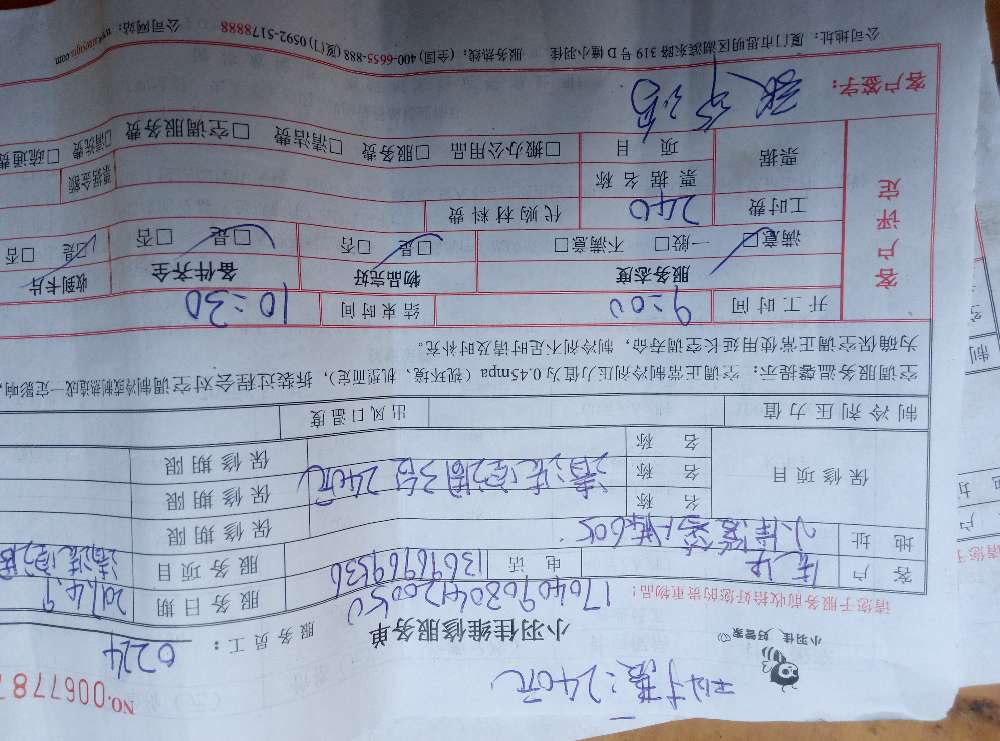 NO.0067787
工时费：240元
小羽佳 好管家
小羽佳维修服务单
服务员工： 0224
请您于服务前收拾好您的贵重物品！
170409080420050
服务日期 2017.4.9
客户
电话 13696969536
服务项目 清洗空调
地址
保修期限
保修项目
名称
保修期限
名称 清洗空调3台 240元
保修期限
名称
保修期限
制冷剂压力值
出风口温度
空调服务温馨提示：空调正常制冷剂压力值为0.45mpa（视环境、机型而定），拆装过程会对空调制冷或制热造成一定影响，
为确保空调正常使用延长空调寿命，制冷剂不足时请及时补充。
客户评定
开工时间 9:00 结束时间 10:30
服务态度 物品完好 备件齐全 收到卡片
满意□ 一般□ 不满意□ □是 □否 □是 □否 □是 □否
工时费 240 代购材料费
票据 票据名称 票据金额
项目 □搬办公用品 □服务费 □清洁费 □空调服务费 □清洗费 □疏通费
客户签字：
公司地址：厦门市思明区湖滨东路319号D幢小羽佳 服务热线：(全国) 400-6655-888 (厦门) 0592-5178888 公司网站：